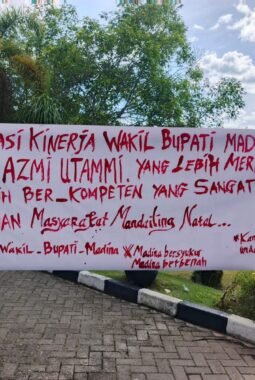 ASI KINERJA WAKIL BUPATI MAD
AZMI UTAMMI. YANG LEBIH MER
IH BER_KOMPETEN YANG SANGAT
AN Masyarakat Mandailing Natal...
Wakil_Bupati_Madina #Madina bersyukur #Kan
Madina berbenah und